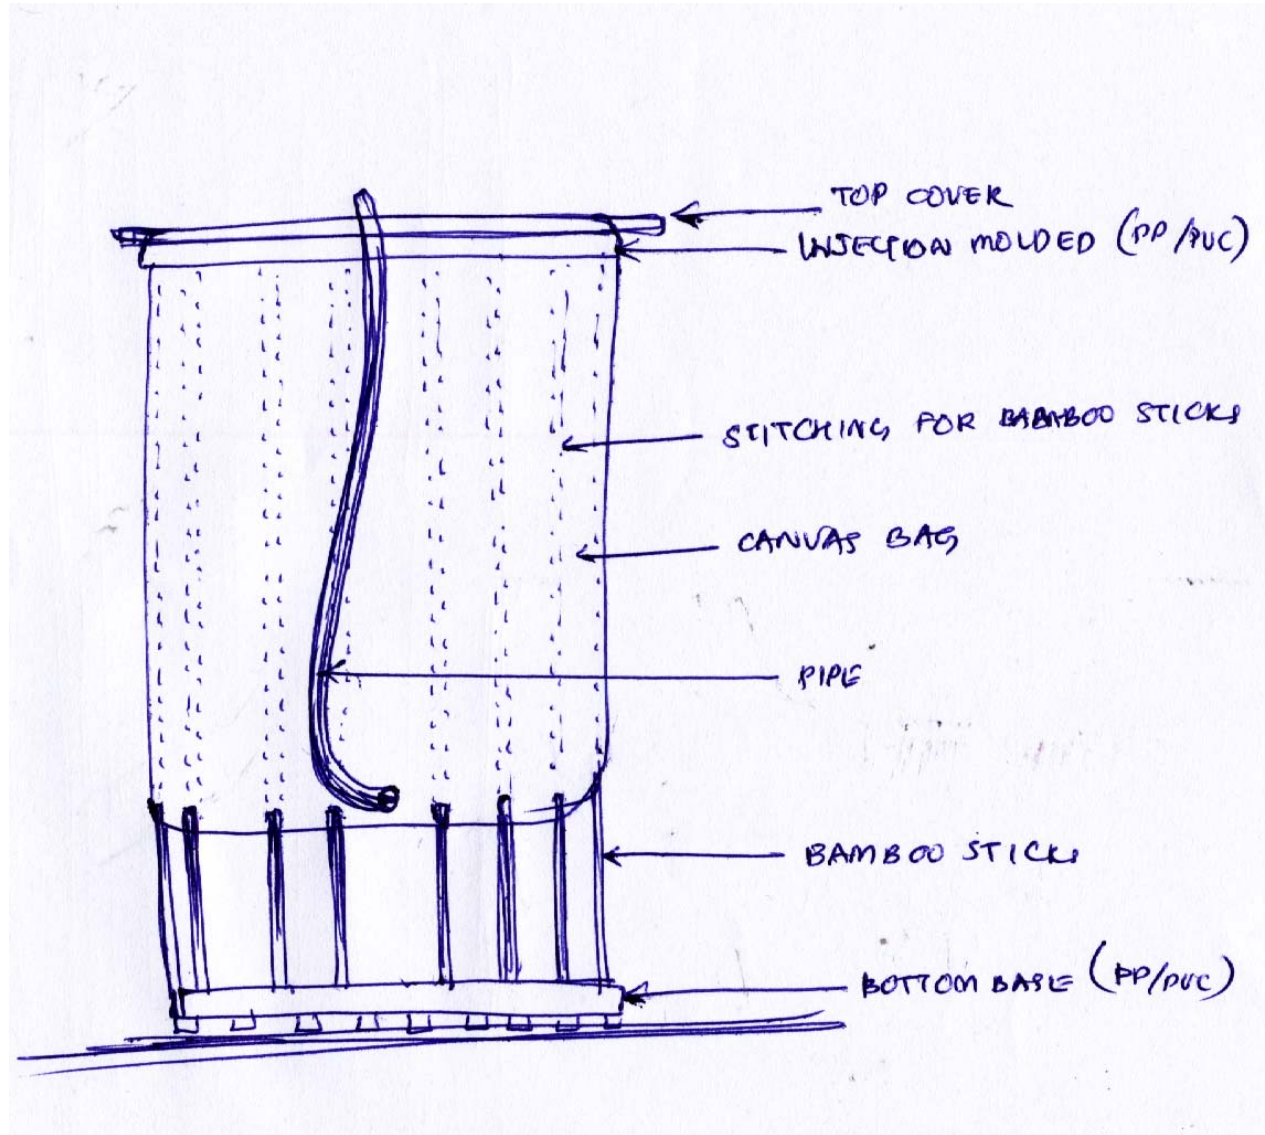 TOP COVER
INJECTION MOLDED (PP/PVC)
STITCHING FOR BABMBOO STICKS
CANVAS BAG
PIPE
BAMBOO STICKS
BOTTOM BASE (PP/PVC)